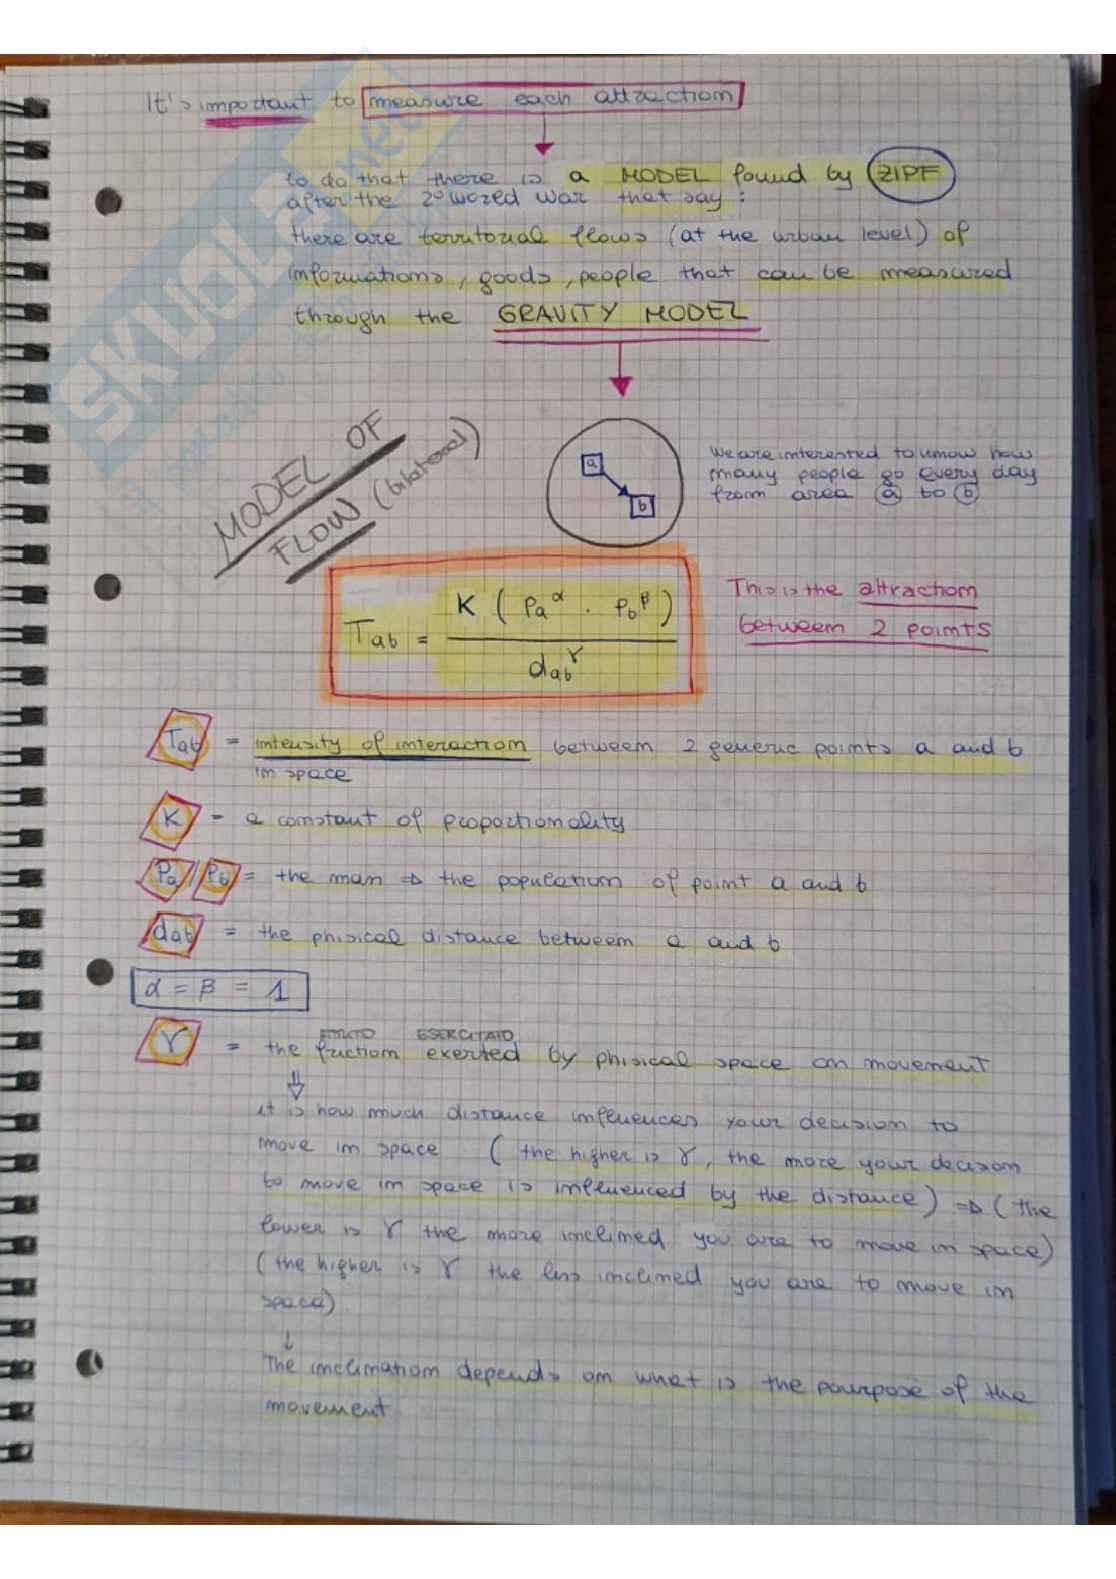 It's important to measure each attraction
to do that there is a MODEL found by ZIPF
after the 2° world war that say:
there are territorial flows (at the urban level) of
informations, goods, people that can be measured
through the GRAVITY MODEL
MODEL OF
FLOW (bilateral)
a
b
We are interested to know how
many people go every day
from area a to b
Tab = K ( Pa^α · Pb^β ) / dab^γ
This is the attraction
between 2 points
Tab = intensity of interaction between 2 generic points a and b
in space
K = a constant of proportionality
Pa / Pb = the man ⇒ the population of point a and b
dab = the phisical distance between a and b
α = β = 1
ATTRITO ESERCITATO
γ = the friction exerted by phisical space on movement
⇓
it is how much distance influences your decision to
move in space ( the higher is γ, the more your decision
to move in space is influenced by the distance) ⇒ (the
lower is γ the more inclined you are to move in space)
(the higher is γ the less inclined you are to move in
space)
↓
The inclination depends on what is the pourpose of the
movement
SKUOLA.net